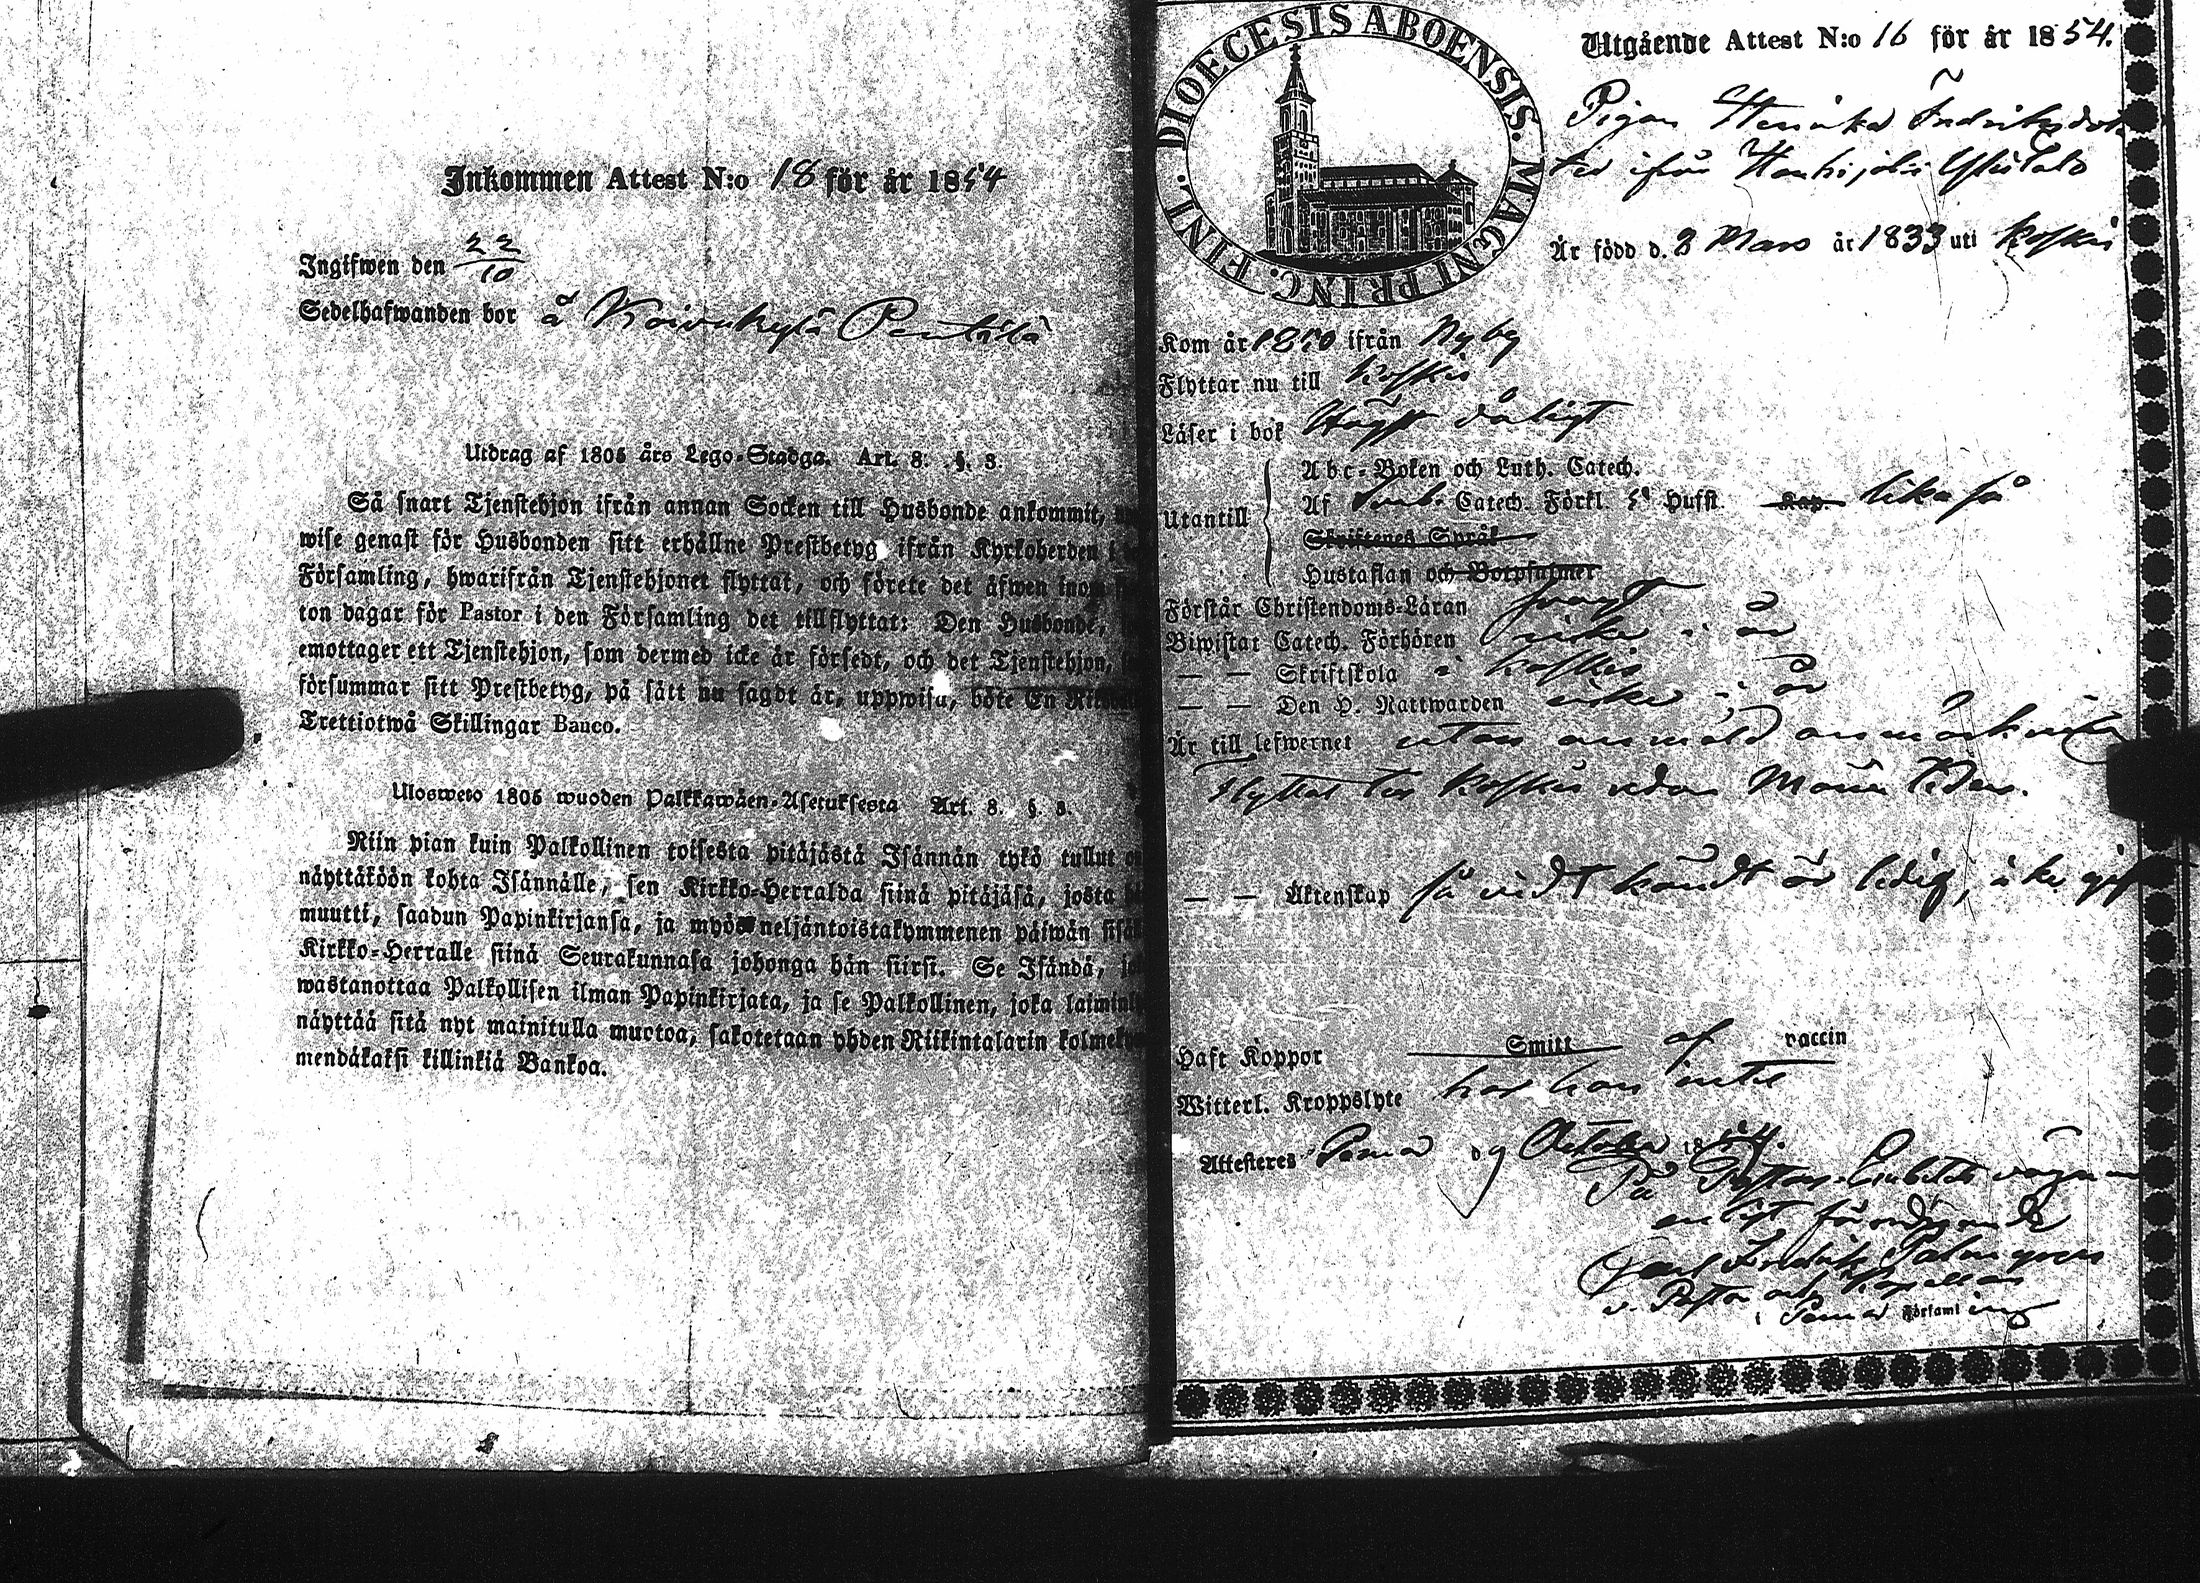 Inkommen Attest N:o 18 för år 1854
Ingifwen den 22/10
Sedelhafwanden bor å Koivukylä Pentilä
Utdrag af 1805 års Lego-Stadga. Art. 8. §. 3.
Så snart Tjenstehjon ifrån annan Socken till Husbonde ankommit,
wise genast för Husbonden sitt erhållne Prestbetyg ifrån Kyrkoherden i
Församling, hwarifrån Tjenstehjonet flyttat, och förete det äfwen inom
ton dagar för Pastor i den Församling det tillflyttat: Den Husbonde,
emottager ett Tjenstehjon, som dermed icke är försedt, och det Tjenstehjon,
försummar sitt Prestbetyg, på sätt nu sagdt är, uppwisa, böte En
Trettiotwå Skillingar Banco.
Uloswето 1805 wuoden Palkkawäen-Asetuksesta Art. 8. §. 3.
Niin pian kuin Palkollinen toisesta pitäjästä Isännän tykö tullut
näyttäköön kohta Isännälle, sen Kirkko-Herralda siinä pitäjäsä, josta
muutti, saadun Papinkirjansa, ja myös neljäntoistakymmenen päiwän
Kirkko-Herralle siinä Seurakunnasa johonga hän siirsi. Se Isändä,
wastanottaa Palkollisen ilman Papinkirjata, ja se Palkollinen, joka
näyttää sitä nyt mainitulla muotoa, sakotetaan yhden Riikintalarin
mendäkaksi killinkiä Bankoa.
DIOECESIS ABOENSIS. MAGNI PRINC. FINL.
Utgående Attest N:o 16 för år 1854.
Pigan Henrika Fredriksdot
ter ifrån Hanhijoki
Är född d. 8 Mars år 1833 uti Koskis
Kom år 1850 ifrån Nyby
Flyttar nu till Koskis
Läser i bok Högst dåligt
Utantill
Abc-Boken och Luth. Catech.
Af Catech. Förkl. 5 Hufst. Kap. lika så
Skriftenes Språk
Hustaflan och Botpsalmer
Förstår Christendoms-Läran svagt
Biwistat Catech. Förhören icke i år
— — Skriftskola i Koskis
— — Den H. Nattwarden icke i år
Är till lefwernet utan anmäld anmärkning
Flyttat till Koskis redan
— — Äktenskap så vidt kändt är ledig, icke gift
Haft Koppor Smitt af vaccin
Witterl. Kroppslyte har hon intet
Attesteres Pemar d 9 October 1854.
På Pastors-Embetets vägnar
enligt förordnande
Carl Fredrik Palmgren
v. Pastor och Kapellan
i Pemar Församling